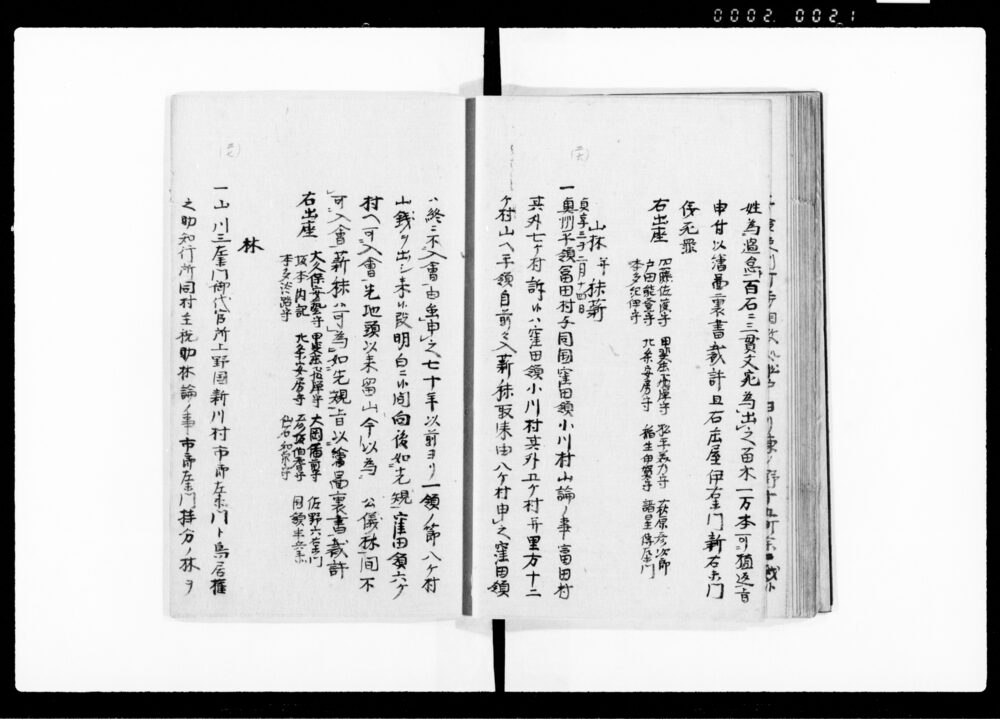 0002 0021
姓為過怠百石ニ三貫文宛為出之苗木一万本可植返旨
申付以繪圖裏書裁許且石庄屋伊右衛門新右衛門
伐元張
右出座 加藤佐渡守 甲斐飛騨守 松平美乃守 萩原彦次郎
戸田能登守 北条安房守 稲生伊賀守 諸星傳左衛門
本多紀伊守
山林并秣薪
貞享三寅二月十四日
一奥州平領冨田村与同国窪田領小川村山論ノ事冨田村
其外七ケ村訴ルハ窪田領小川村其外五ケ村并里方十二
ケ村山ヘ平領自前々入薪秣取来由八ケ村申之窪田領
ハ終ニ不入會由虽申之七十年以前ヨリ一領ノ節八ケ村
山銭ヲ出シ来ル段明白ニ小間向後如先規窪田領六ケ
村ヘ可入會先地頭以来留山今以為 公儀林間不
可入會薪秣ハ可為如先規旨以繪圖裏書裁許
右出座 大久保安藝守 甲斐飛騨守 大岡備前守 佐野六右衛門
坂本内記 北条安房守 彦坂伯耆守 国領半兵衛
本多淡路守 仙石和泉守
林
一山川三左衛門御代官所上野国新川村市郎左衛門ト鳥居権
之助知行所同村主税助林論ノ事市郎左衛門持分ノ林ヲ